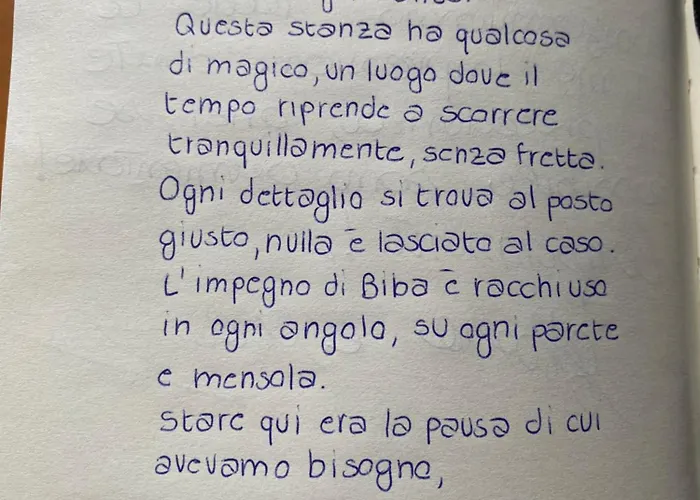 Questa stanza ha qualcosa
di magico, un luogo dove il
tempo riprende a scorrere
tranquillamente, senza fretta.
Ogni dettaglio si trova al posto
giusto, nulla è lasciato al caso.
L'impegno di Biba è racchiuso
in ogni angolo, su ogni parete
e mensola.
Stare qui era la pausa di cui
avevamo bisogno,